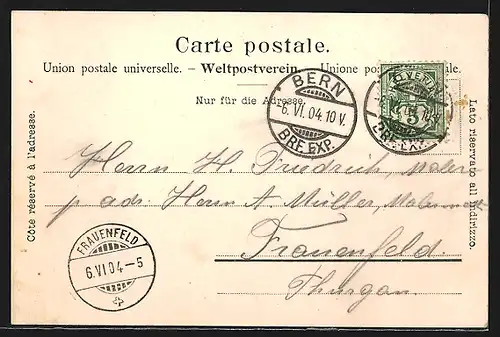 Carte postale.
Union postale universelle. – Weltpostverein. – Unione postale
Nur für die Adresse.
BERN
-6. VI. 04. 10 V.
BRF. EXP.
BRF. EXP.
5
Côté réservé à l'adresse.
Lato riservato all'indirizzo.
Herrn H. Friedrich, Maler
p. adr: Herrn A. Müller,
Frauenfeld.
Thurgau.
FRAUENFELD
6. VI 04 – 5